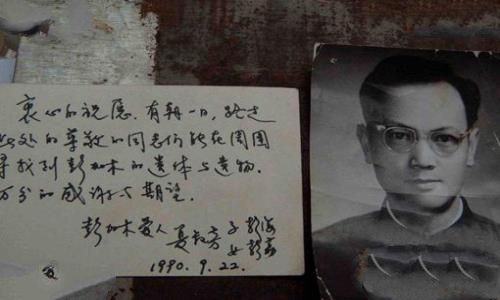 衷心的祝愿. 有朝一日, 路过
此处的尊敬的同志们能在周围
寻找到彭加木的遗体与遗物.
万分的感谢与期望.
彭加木爱人 夏叔芳 子 彭海
女 彭荔
1990. 9. 22.